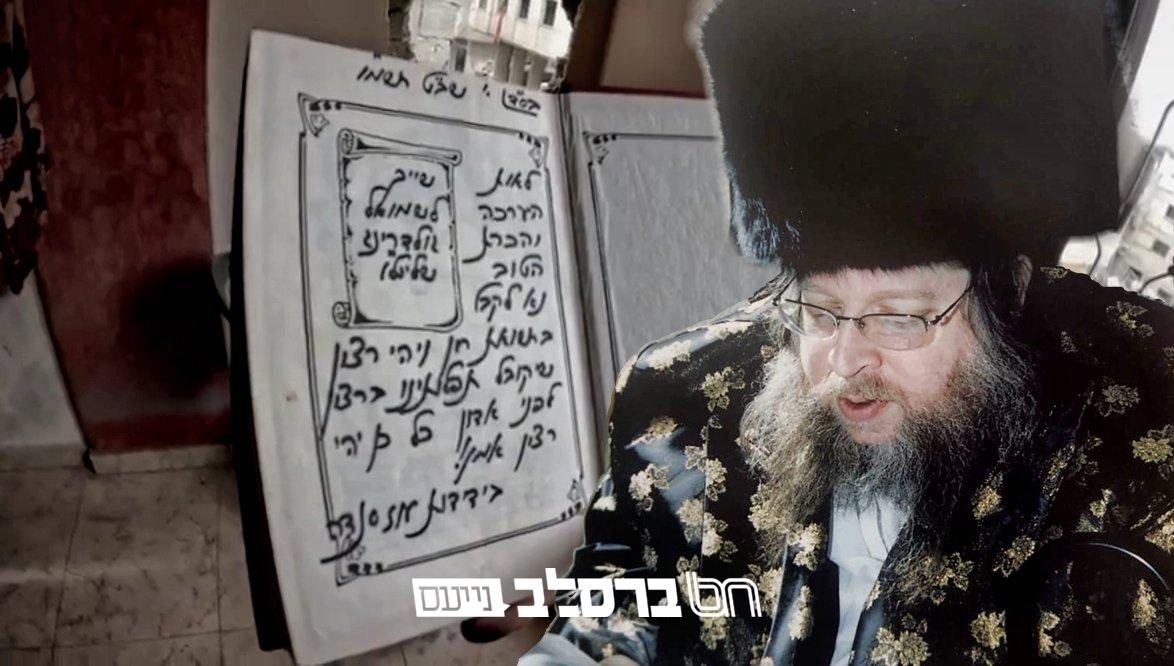 בס"ד י' שבט תשמ"ו
שייך
לשמואל
גולדרינג
לאות
הערכה
והכרת
הטוב
נא לקבל
בתשואת חן ויהי רצון
שיקובל תפלתינו ברצון
לפני אדון כל כן יהי
רצון אמן.
בידידות עוז
ברסלב נייעס